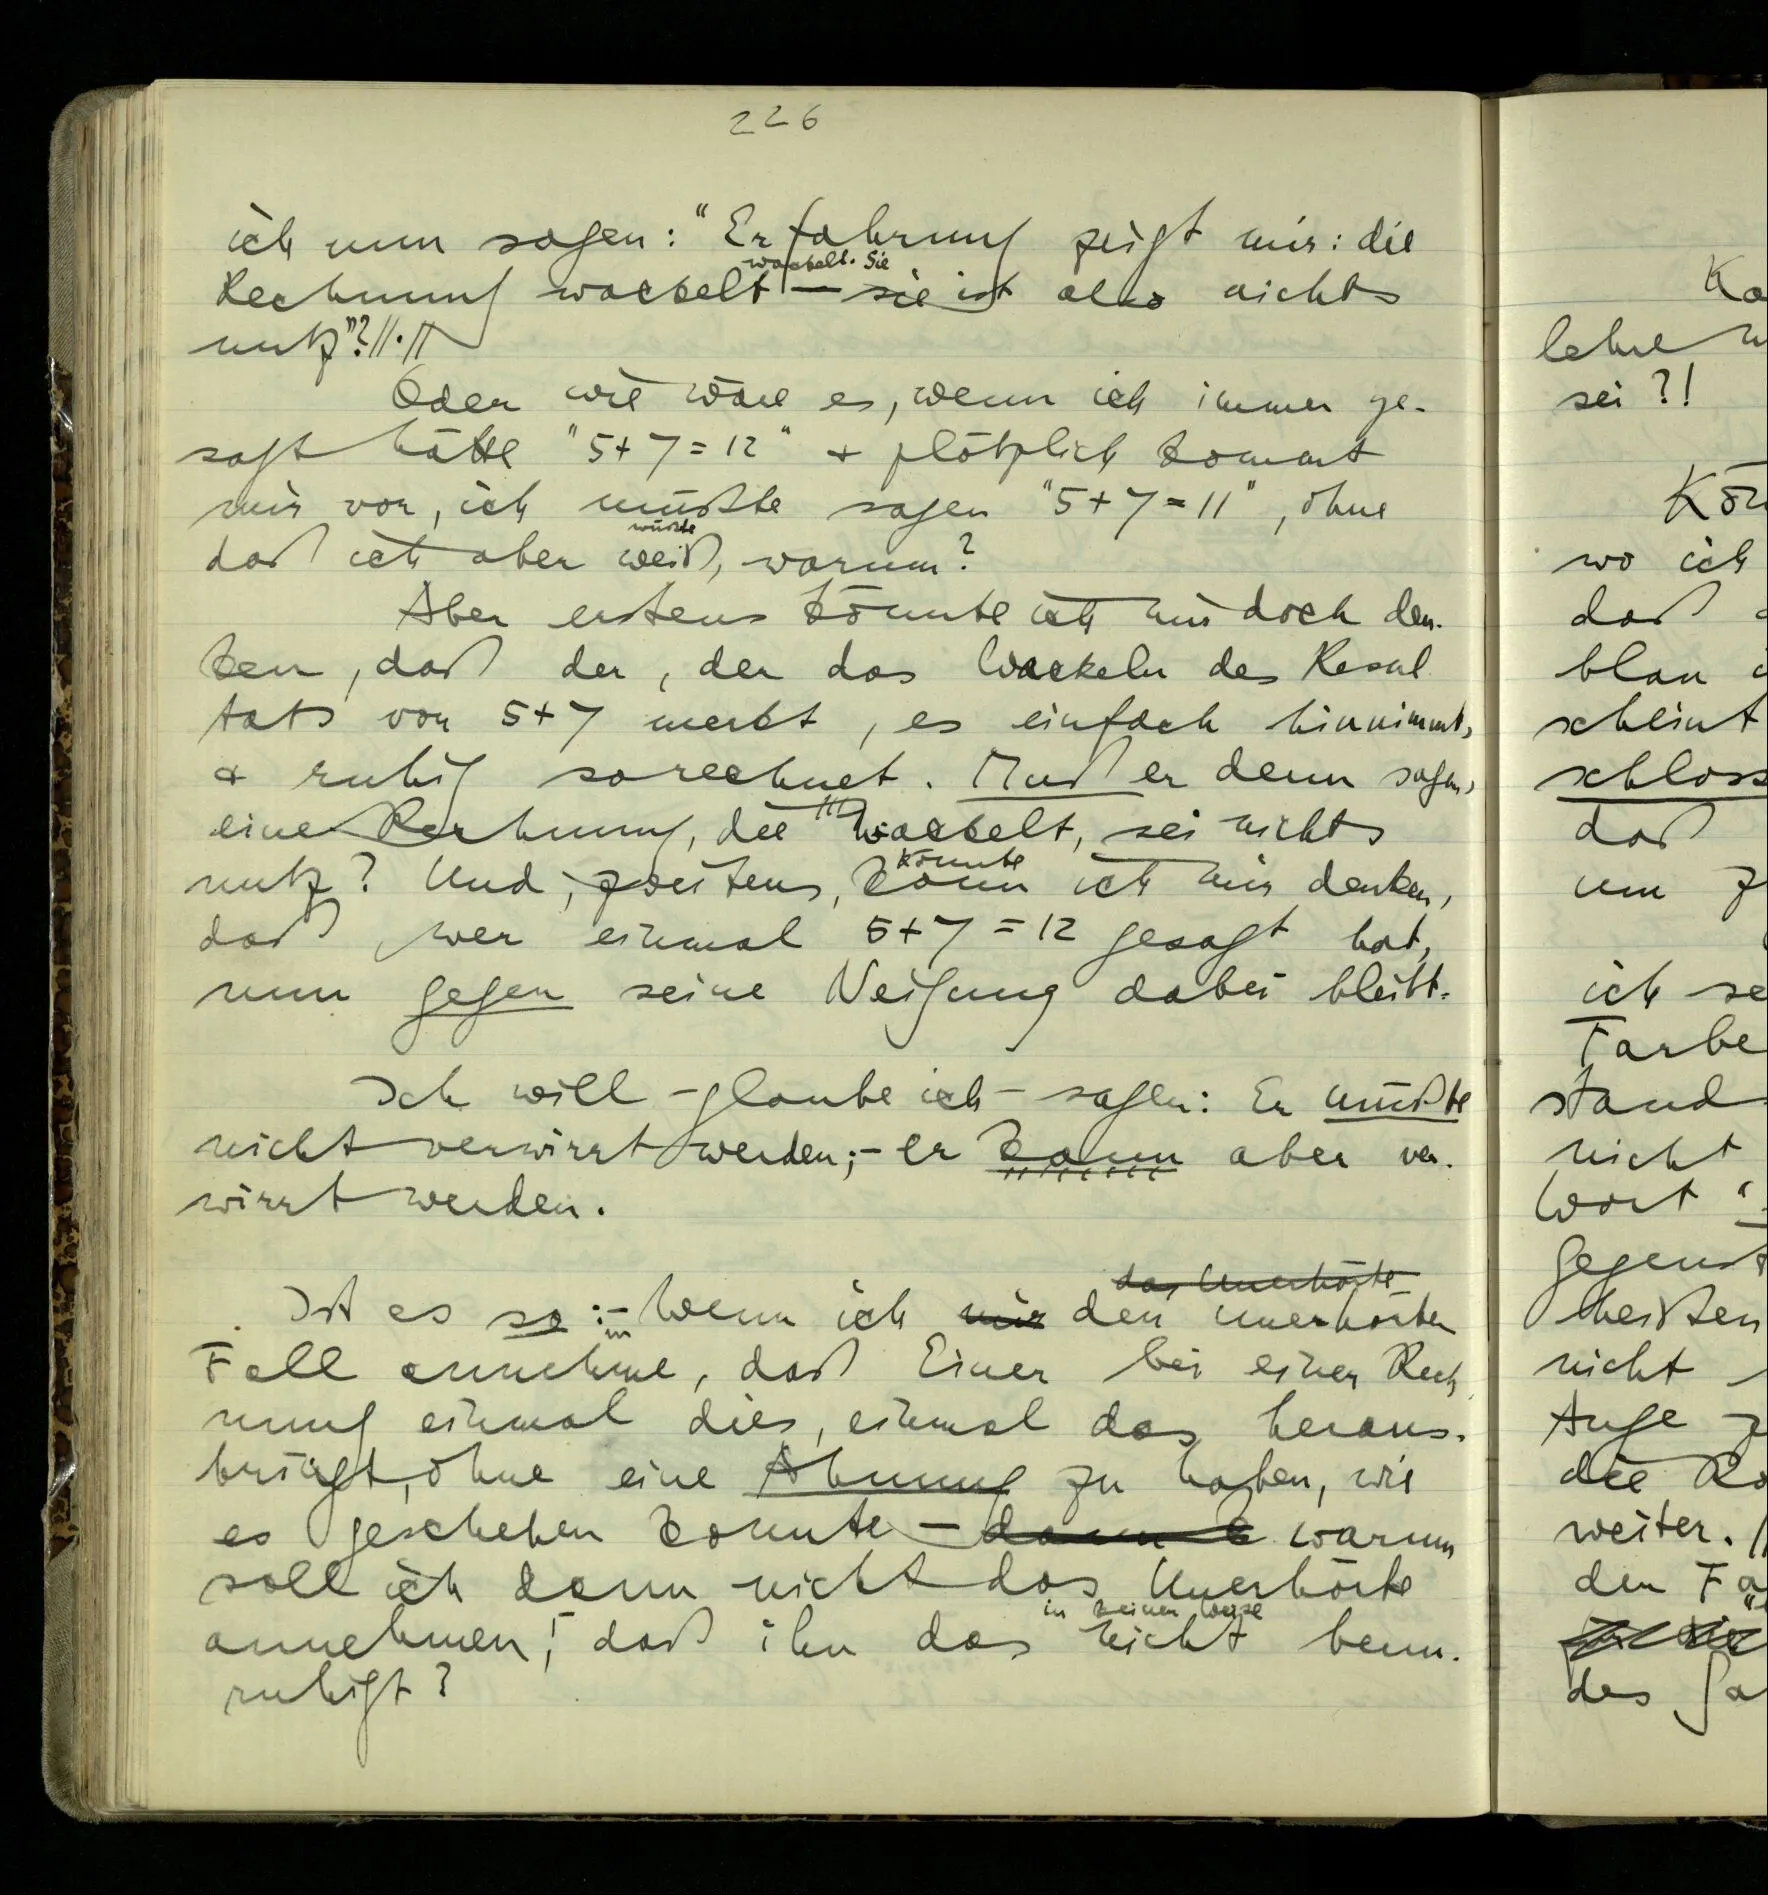 226
ich nun sagen: "Erfahrung zeigt mir: die
wackelt. Sie
Rechnung wackelt — sie ist also nichts
nutz"?//.//
Oder wie wäre es, wenn ich immer ge-
sagt hätte "5+7=12" + plötzlich kommt
mir vor, ich müßte sagen "5+7=11", ohne
wüßte
daß ich aber weiß, warum?
Aber erstens könnte ich mir doch den-
ken, daß der, der das Wackeln des Resul
tats von 5+7 merkt, es einfach hinnimmt,
& ruhig so rechnet. Muß er denn sagen,
eine Rechnung, die wackelt, sei nichts
könnte
nutz? Und, zweitens, kann ich mir denken,
daß, wer einmal 5+7=12 gesagt hat,
nun gegen seine Neigung dabei bleibt.
Ich will – glaube ich – sagen: Er müßte
nicht verwirrt werden; – er kann aber ver-
wirrt werden.
das Unerhörte
Ist es so: – Wenn ich mir den unerhörten
Fall annehme, daß Einer bei einer Rech
nung einmal dies, einmal das heraus-
bringt, ohne eine Ahnung zu haben, wie
es geschehen konnte – warum
soll ich dann nicht das Unerhörte
in keiner Weise
annehmen, daß ihn das nicht beun-
ruhigt?
Ka
lehre
sei?!
Kön
wo ich
daß
blau
scheint
schloss
daß
um
ich se
Farbe
stand
nicht
Wort "
gegenst
heißen
nicht
Auge
die
weiter. //
den Fa
des